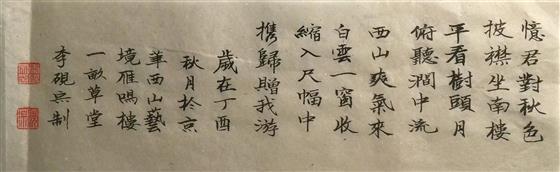 憶君對秋色
披襟坐南樓
平看樹頭月
俯聽澗中流
西山爽氣來
白雲一窗收
縮入尺幅中
携歸贈我游
歲在丁酉
秋月於京
華西山藝
境雁鳴樓
一畝草堂
李硯制